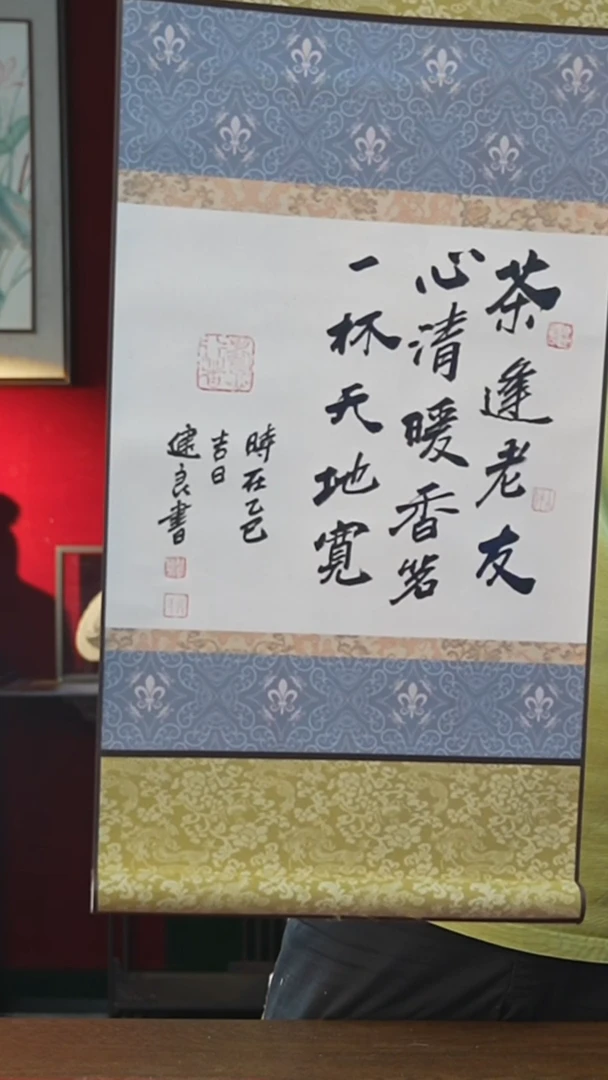 茶逢老友
心清暖香茗
一杯天地寬
時在乙巳
吉日
健良書